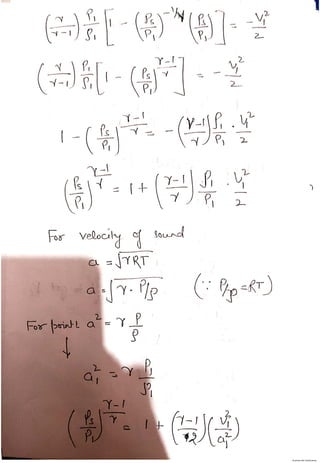 (γ/γ-1) P₁/ρ₁ [1 - (Ps/P₁)^(-1/γ) (Ps/P₁)] = -V₁²/2
(γ/γ-1) P₁/ρ₁ [1 - (Ps/P₁)^(γ-1/γ)] = -V₁²/2
1 - (Ps/P₁)^(γ-1/γ) = -(γ-1/γ) ρ₁/P₁ · V₁²/2
(Ps/P₁)^(γ-1/γ) = 1 + (γ-1/γ) ρ₁/P₁ · V₁²/2
For velocity of sound
a = √γRT
a = √γ · P/ρ (∵ P/ρ = RT)
For point a² = γ P/ρ
↓
a₁² = γ P₁/ρ₁
(Ps/P₁)^(γ-1/γ) = 1 + (γ-1/2)(V₁²/a₁²)